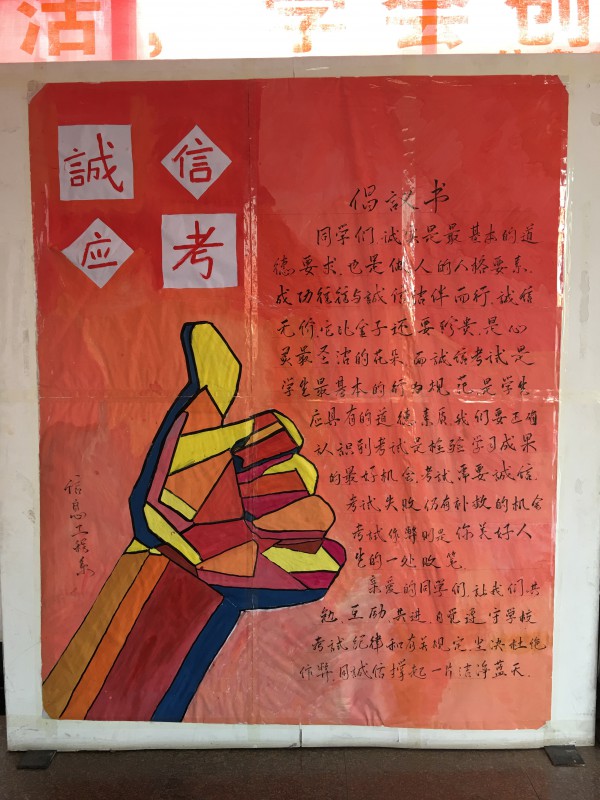 洁，学生创
誠 信
应 考
倡议书
同学们，诚实是最基本的道
德要求，也是做人的人格要素，
成功往往与誠信结伴而行，诚信
无价，它比金子还要珍贵，是心
灵最圣洁的花朵，而誠信考试是
学生最基本的行为规范，是学生
应具有的道德素质，我们要正确
认识到考试是检验学习成果
的最好机会，考试需要诚信，
考试失败仍有补救的机会
考试作弊则是你美好人
生的一处败笔。
亲爱的同学们，让我们共
勉，互励，共进，自觉遵守学校
考试纪律和有关规定，坚决杜绝
作弊，同誠信撑起一片洁净蓝天.
信息工程系